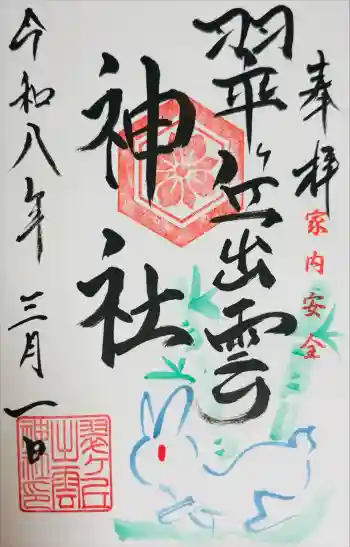 奉拝
家内安全
翠ヶ丘出雲
神社
令和八年 三月 一日
翠ヶ丘
出雲
神社印